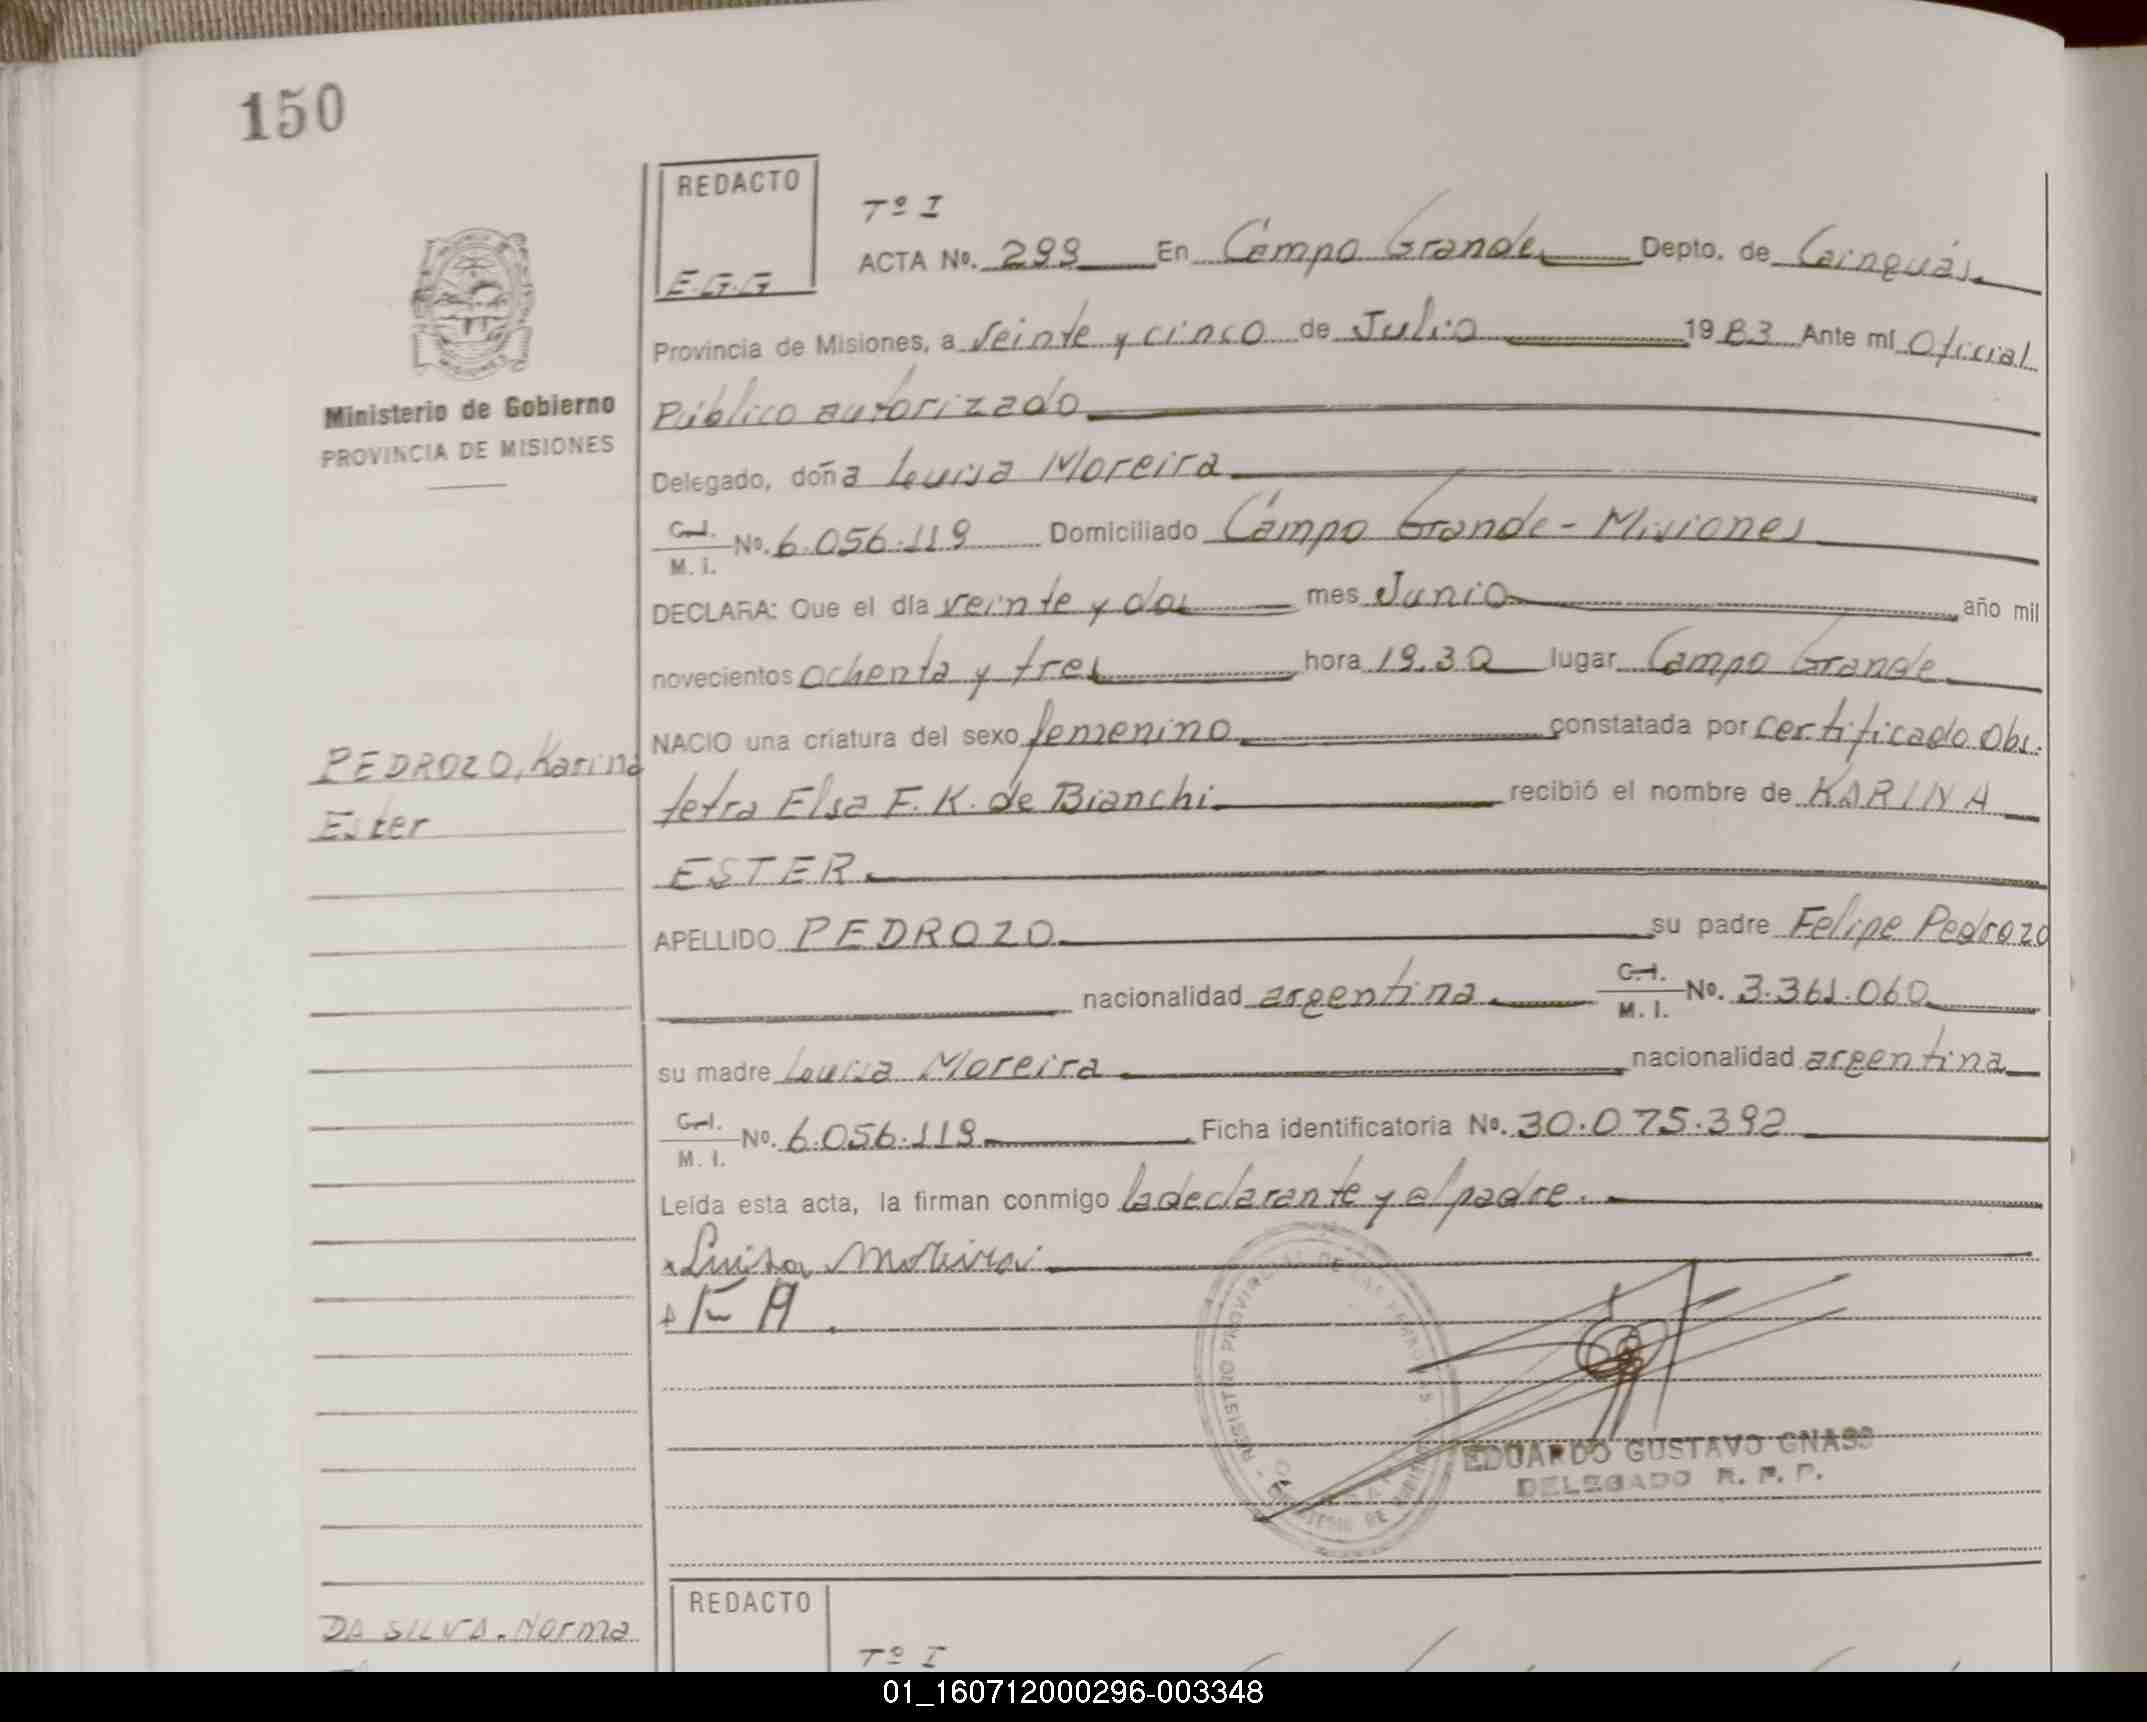 150
REDACTO
E.G.G
Tº I
ACTA Nº. 299 En Campo Grande Depto. de Cainguás
Provincia de Misiones, a veinte y cinco de Julio 1983 Ante mí Oficial
Público autorizado
Delegado, doña Luisa Moreira
C.I. M. I. Nº. 6.056.119 Domiciliado Campo Grande - Misiones
DECLARA: Que el día veinte y dos mes Junio año mil
novecientos ochenta y tres hora 19.30 lugar Campo Grande
NACIO una criatura del sexo femenino constatada por certificado Obs.
tetra Elsa F. K. de Bianchi recibió el nombre de KARINA
ESTER.
APELLIDO PEDROZO su padre Felipe Pedrozo
nacionalidad argentina C.I. M. I. Nº. 3.361.060
su madre Luisa Moreira nacionalidad argentina
C.I. M. I. Nº. 6.056.119 Ficha identificatoria Nº. 30.075.392
Leída esta acta, la firman conmigo la declarante y el padre.
Luisa Moreira
EDUARDO GUSTAVO GNASS
DELEGADO R. P. P.
Ministerio de Gobierno
PROVINCIA DE MISIONES
PEDROZO, Karina
Ester
REDACTO
Tº I
DA SILVA, Norma
01_160712000296-003348